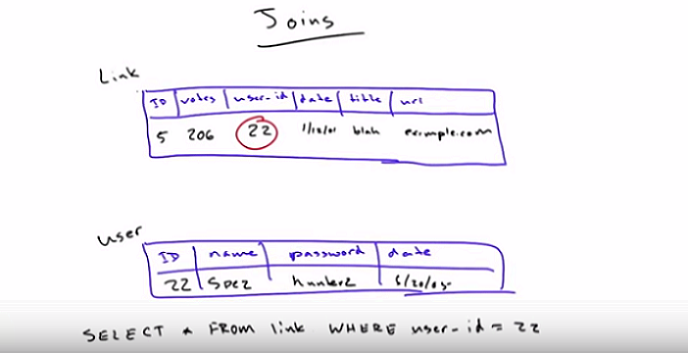 Joins
Link
ID votes user-id date title url
5 206 22 1/10/01 blah example.com
user
ID name password date
22 Spez hunter2 6/20/05
SELECT * FROM link WHERE user-id = 22